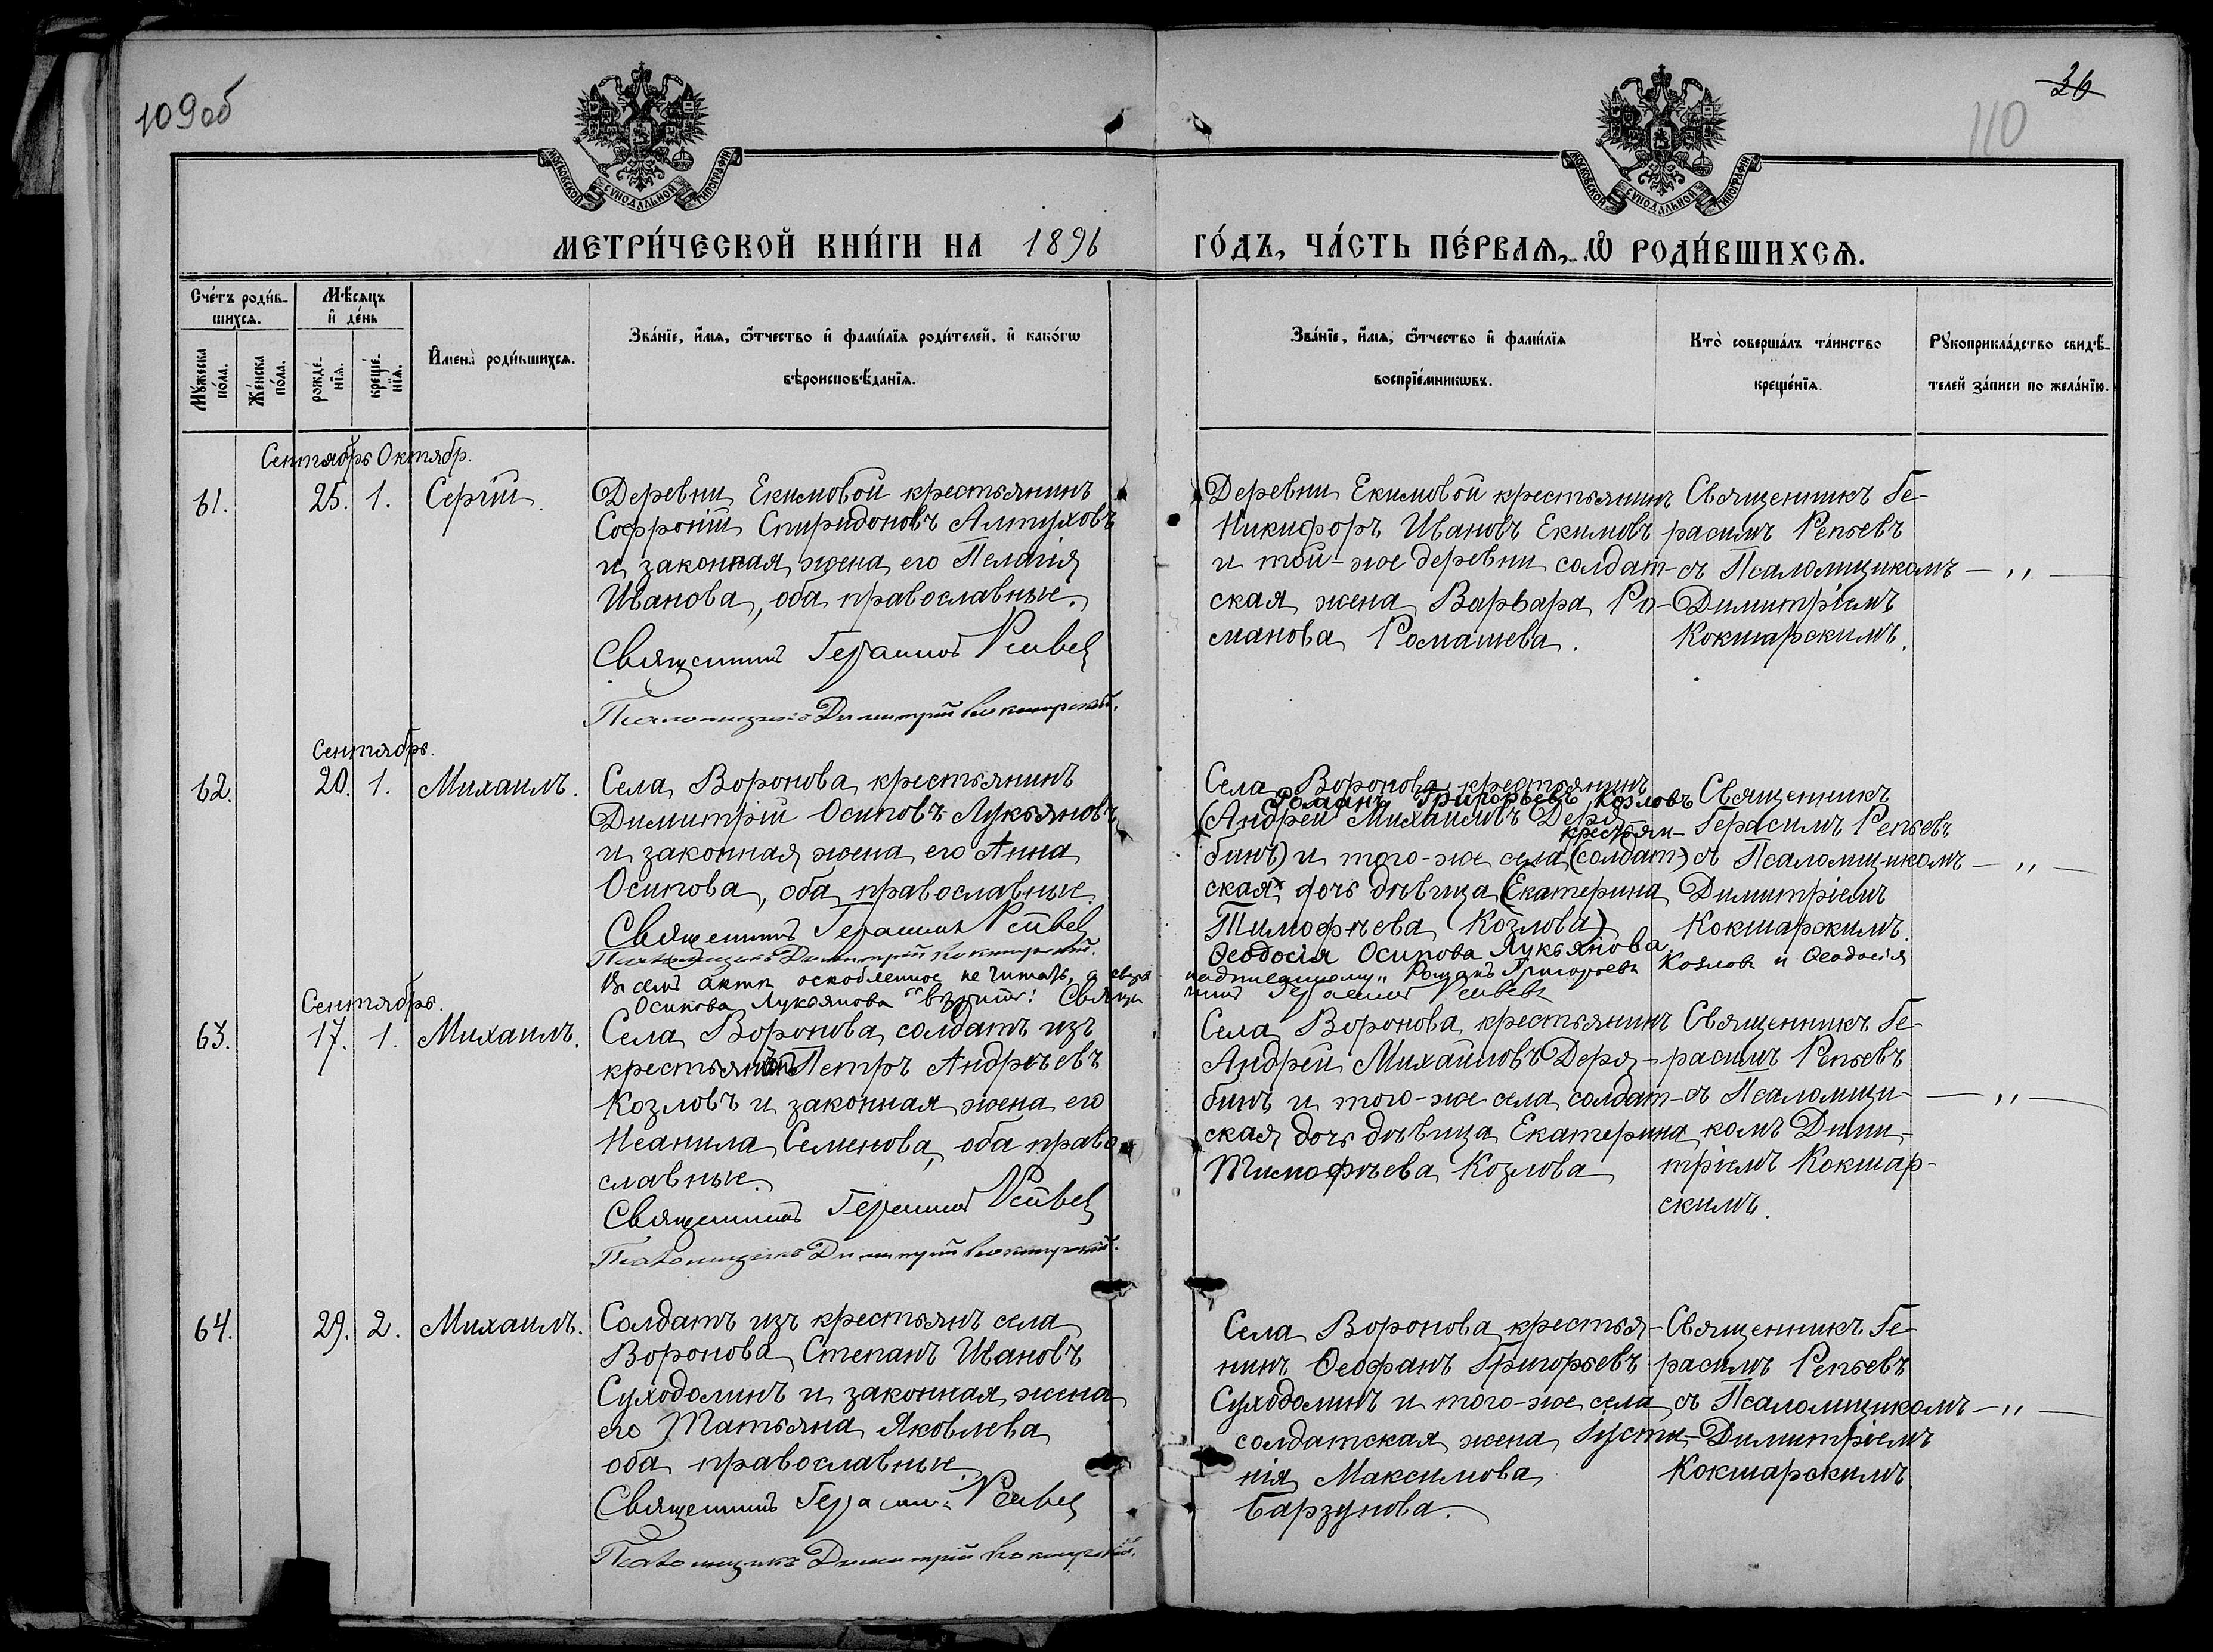 109об
26
110
МОСКОВСКОЙ СѴНОДАЛЬНОЙ ТИПОГРАФІИ
МОСКОВСКОЙ СѴНОДАЛЬНОЙ ТИПОГРАФІИ
МЕТРИ́ЧЕСКОЙ КНИ́ГИ НА 1896 ГО́ДЪ, ЧА́СТЬ ПЕ́РВАѦ, Ѡ҆ РОДИ́ВШИХСѦ.
Сче́тъ роди́в-
шихсѧ.
Мꙋ́жеска по́ла.
Же́нска по́ла.
Мѣ́сяцъ
и҆ де́нь
рожде́-
нїѧ.
креще́-
нїѧ.
И҆мена̀ роди́вшихсѧ.
Зва́нїе, и҆́мѧ, ѻ҆́тчество и҆ фами́лїѧ роди́телей, и҆ како́гѡ
вѣроисповѣ́данїѧ.
Зва́нїе, и҆́мѧ, ѻ҆́тчество и҆ фами́лїѧ
воспрїе́мникѡвъ.
Кто̀ соверша́лъ та́инство
креще́нїѧ.
Рꙋкоприкла́дство свидѣ́-
телей за́писи по жела́нїю.
Сентябрь Октябр.
61. 25. 1. Сергій.
Деревни Екимовой крестьянинъ
Софроній Спиридоновъ Алтуховъ
и законная жена его Пелагія
Иванова, оба православные.
Священникъ Герасимъ Репьевъ
Псаломщикъ Димитрій Кокшарскій.
Деревни Екимовой крестьянинъ
Никифоръ Ивановъ Екимовъ
и той-же деревни солдат-
ская жена Варвара Ро-
манова Ромашева.
Священникъ Ге-
расимъ Репьевъ
съ Псаломщикомъ — „ —
Димитріемъ
Кокшарскимъ.
Сентябрь.
62. 20. 1. Михаилъ.
Села Воронова крестьянинъ
Димитрій Осиповъ Лукьяновъ
и законная жена его Анна
Осипова, оба православные.
Священникъ Герасимъ Репьевъ
Псаломщикъ Димитрій Кокшарскій.
Села Воронова крестьянинъ
Романъ Григорьевъ Козловъ
(Андрей Михаиловъ Деря
крестьян-
бинъ) и того-же села (солдат)
ская дочь дѣвица (Екатерина
Тимофѣева Козлова)
Ѳеодосія Осипова Лукьянова
Священникъ
Герасимъ Репьевъ
съ Псаломщикомъ — „ —
Димитріемъ
Кокшарскимъ.
Въ семъ актѣ оскобленное не читать, а сверх надписанному „Романъ Григорьевъ Козловъ и Ѳеодосія
Осипова Лукьянова“ вѣрить: Священникъ Герасимъ Репьевъ
Сентябрь.
63. 17. 1. Михаилъ.
Села Воронова солдатъ изъ
крестьянъ Петръ Андрѣевъ
Козловъ и законная жена его
Неанила Семенова, оба право
славные.
Священникъ Герасимъ Репьевъ
Псаломщикъ Димитрій Кокшарскій.
Села Воронова крестьянинъ
Андрей Михайловъ Деря-
бинъ и того-же села солдат-
ская дочь дѣвица Екатерина
Тимофѣева Козлова
Священникъ Ге-
расимъ Репьевъ
съ Псаломщи- — „ —
комъ Дими-
тріемъ Кокшар-
скимъ.
64. 29. 2. Михаилъ.
Солдатъ изъ крестьянъ села
Воронова Степанъ Ивановъ
Суходолинъ и законная жена
его Татьяна Яковлева
оба православные.
Священникъ Герасимъ Репьевъ
Псаломщикъ Димитрій Кокшарскій.
Села Воронова крестья-
нинъ Ѳеофанъ Григорьевъ
Суходолинъ и того-же села
солдатская жена Іусти-
нія Максимова
Барзунова.
Священникъ Ге-
расимъ Репьевъ
съ Псаломщикомъ — „ —
Димитріемъ
Кокшарскимъ.